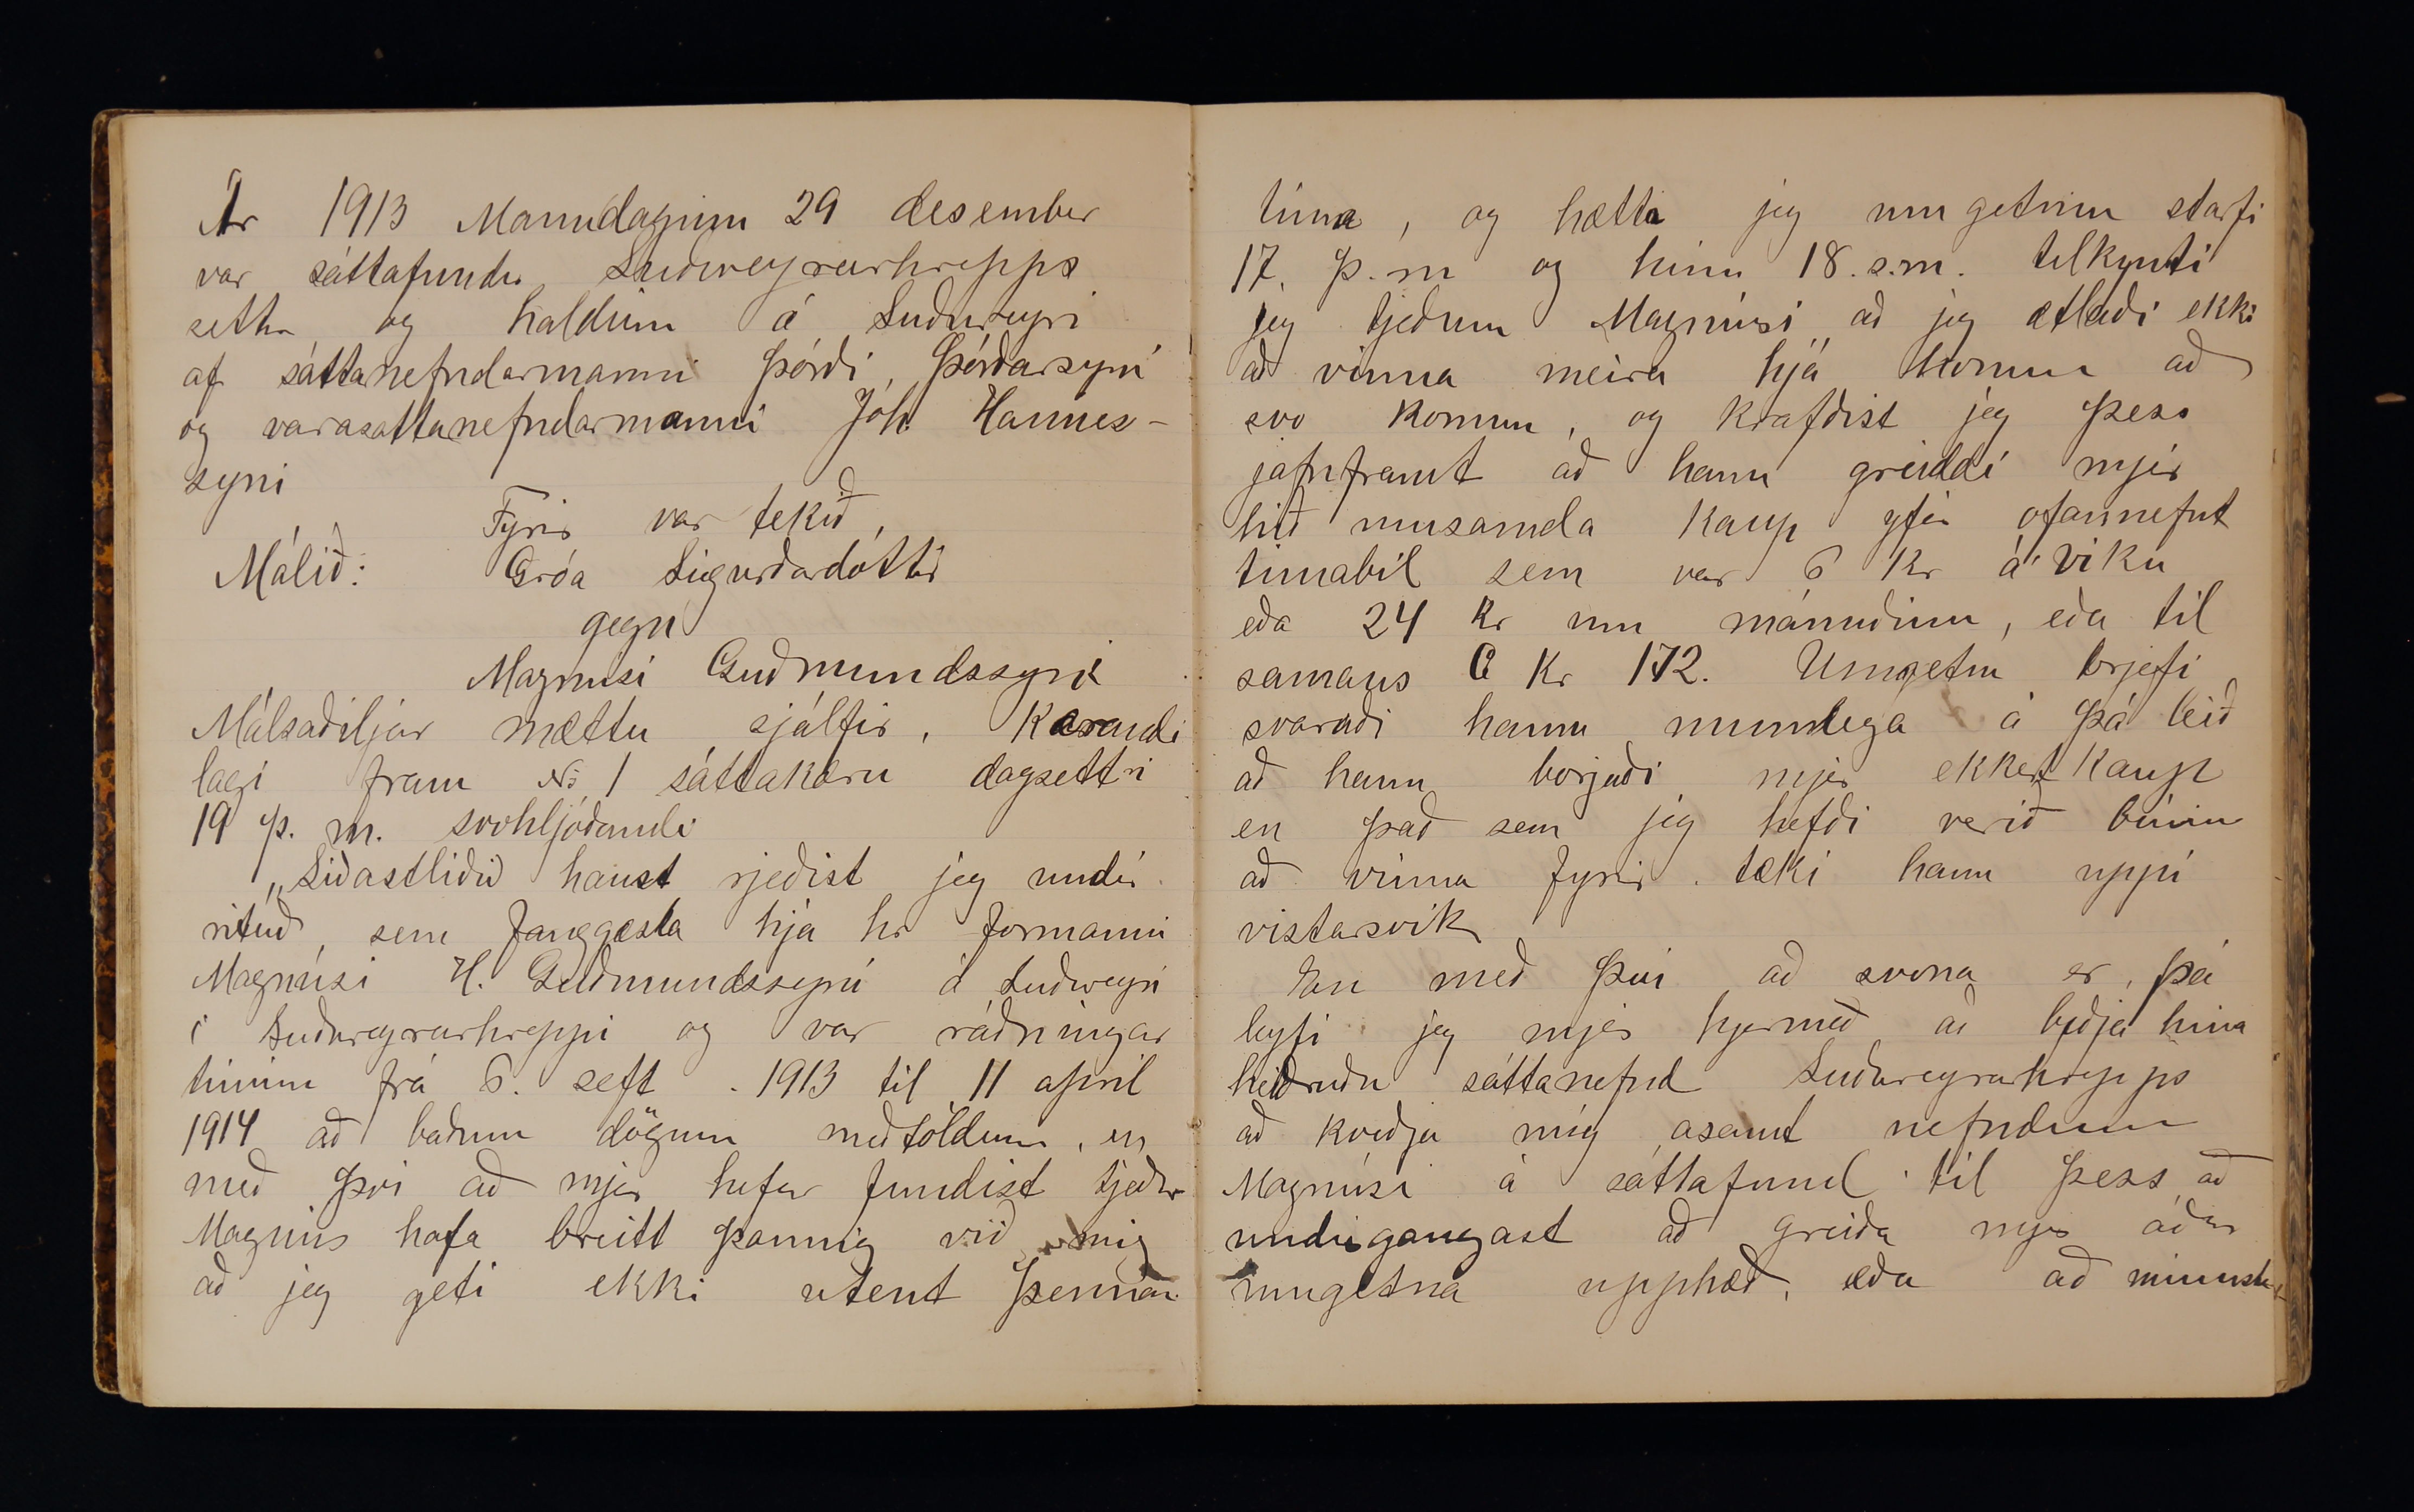 Ár 1913 Mánudaginn 29 desember
var sáttafundur Suðureyrarhrepps
settur og haldinn á Suðureyri
af sáttanefndarmanni Þórði Þórðarsyni
og varasattanefndarmanni Jóh. Hannes-
syni
Fyrir var tekið,
Málið: Gróa Sigurðardóttir
gegn
Magnúsi Guðmundssyni
Málsaðiljar mættu sjálfir. Kærandi
lagi fram No 1 sáttakæru dagsettri
19 þ. m. svohljóðandi
„Síðastliðið haust rjeðist jeg undir
rituð, sem fanggæsla hjá hr formanni
Magnúsi H. Guðmundssyni á Suðureyri
í Suðureyrarhreppi og var ráðningar
tíminn frá 6. seft. 1913 til 11 april
1914 að baðum dögum meðtöldum, en
með því að mjer hefur fundist tjeður
Magnús hafa breitt þannig við mig
að jeg geti ekki utent þennan
tíma, og hætti jeg umgetnu starfi
17. þ.m og hinn 18. s.m. tilkynti
jeg tjeðum Magnúsi að jeg ætlaði ekki
að vinna meira hjá honum að
svo komnu, og krafðist jeg þess
jafnframt að hann greiddi mjer
hið umsamda kaup yfir ofannefnt
timabil sem var 6 kr á viku
eða 24 kr um mánuðinn, eða til
samans kr 172. Umgetnu brjefi
svaraði hann munnlega á þá leið
að hann borgaði mjer ekkert kaup
en það sem jeg hefði verið búin
að vinna fyrir tæki hann uppí
vistarsvik
En með því að svona er, þá
leyfi jeg mjer hjermeð að biðja hina
heiðruðu sáttanefnd Suðureyrarhrepps
að kveðja mig asamt nefndum
Magnúsi á sáttafund til þess að
undirgangast að greiða mjer áður
umgetna upphæð, eða að minnsta